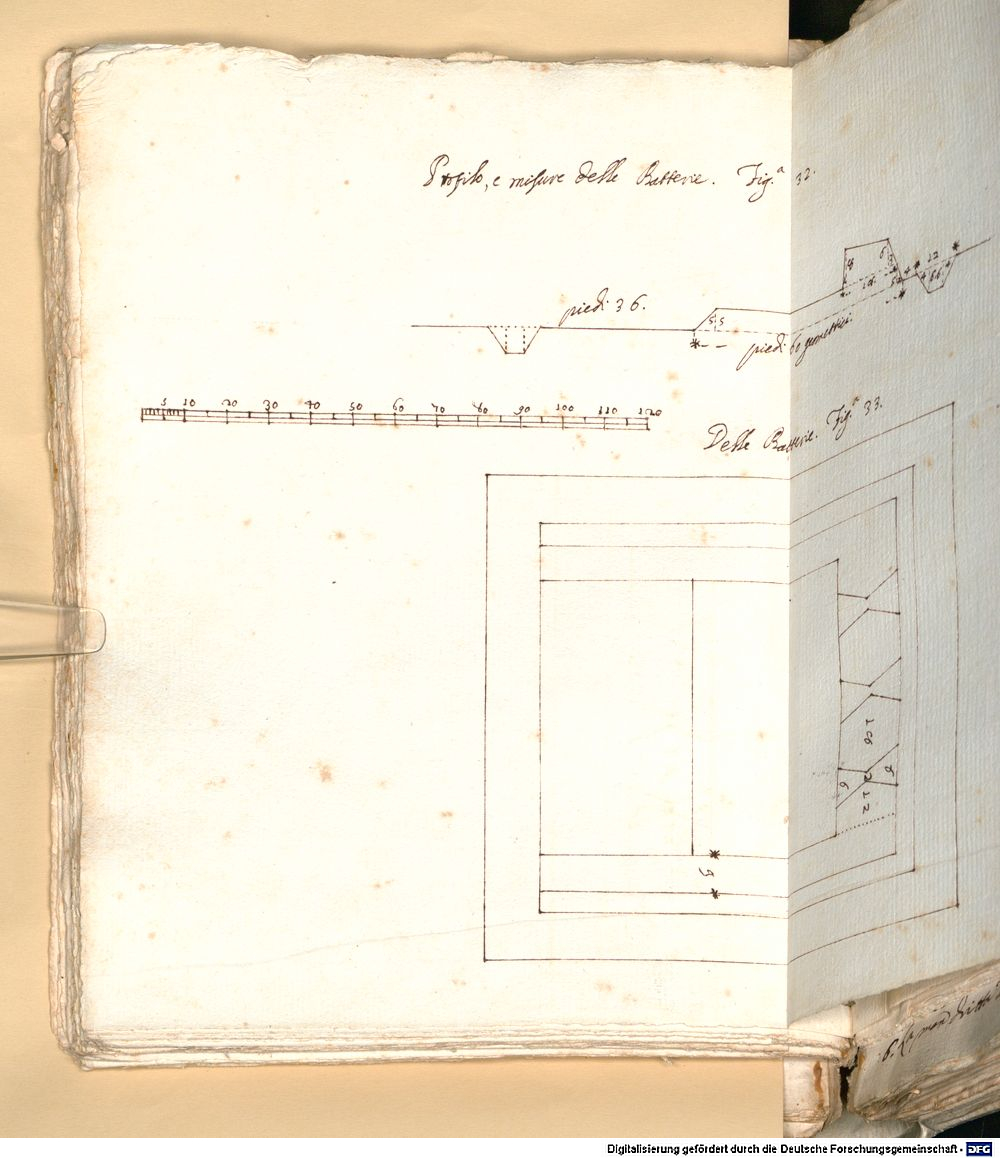 Profilo, e misure delle Batterie. Fig.ª 32.
piedi 36.
5 5
piedi 60 geometrici
8 6 4 12
5 10 20 30 40 50 60 70 80 90 100 110 120
Delle Batterie. Fig.ª 33.
9
Digitalisierung gefördert durch die Deutsche Forschungsgemeinschaft - DFG